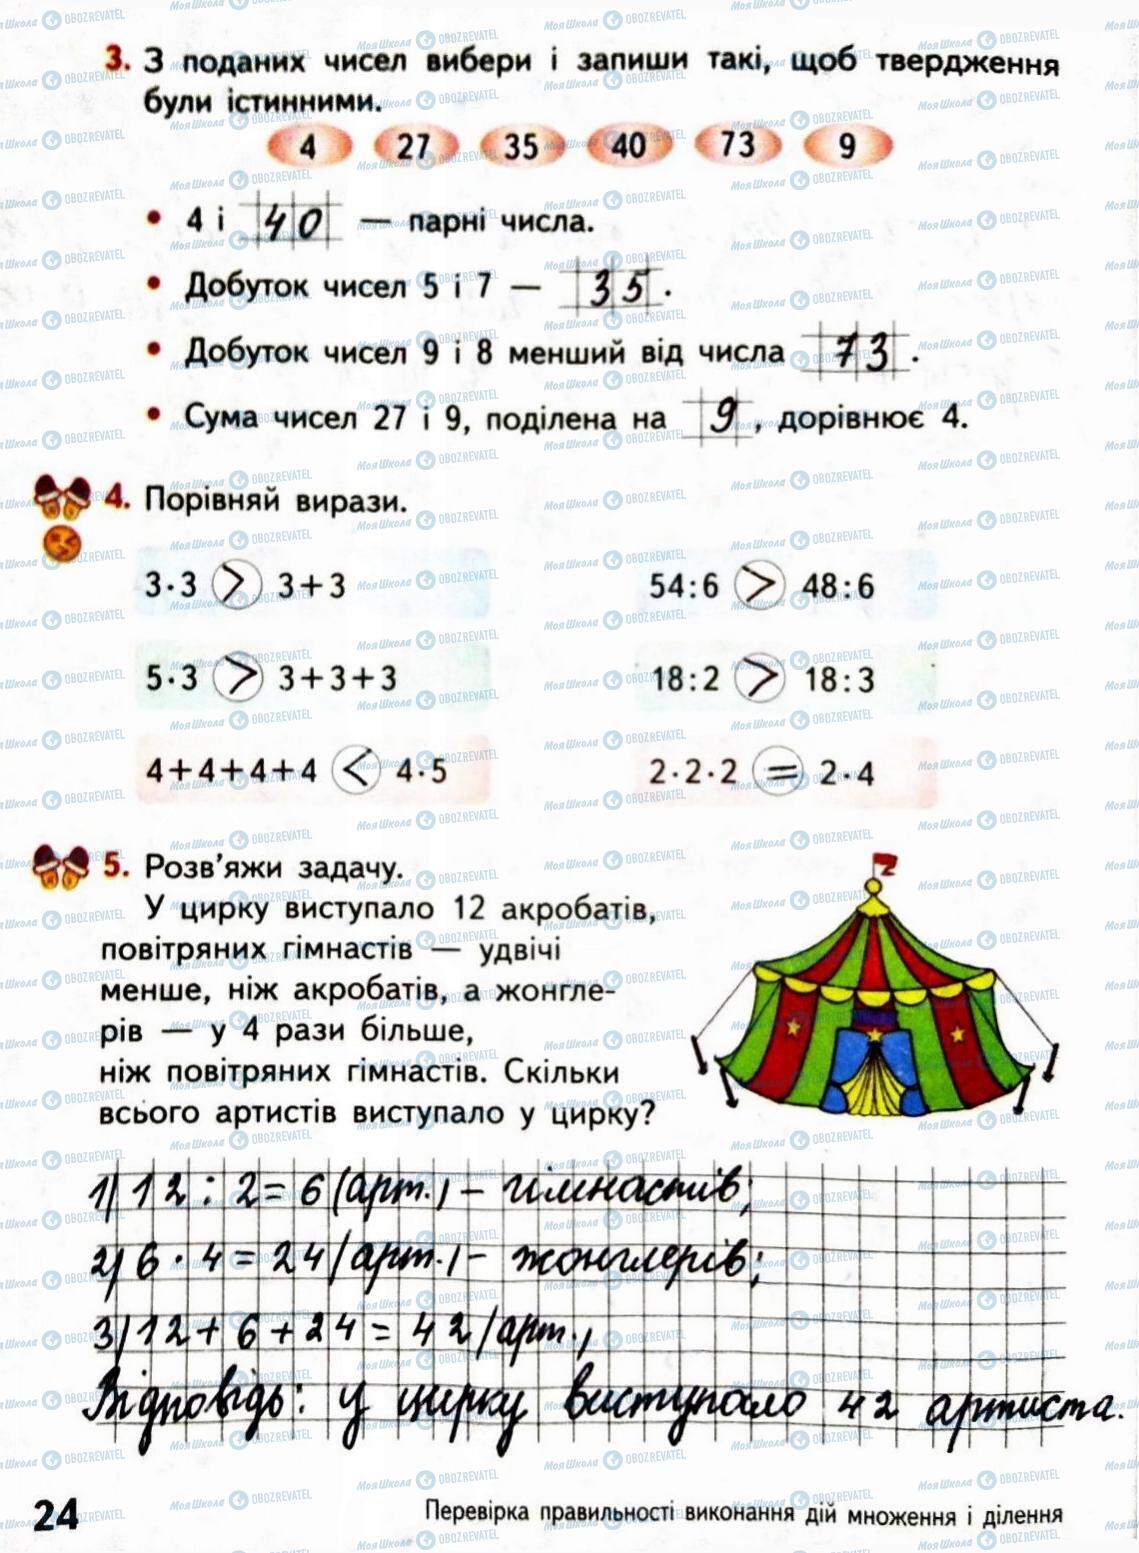 3. З поданих чисел вибери і запиши такі, щоб твердження
були істинними.
4 27 35 40 73 9
• 4 і 40 — парні числа.
• Добуток чисел 5 і 7 — 35.
• Добуток чисел 9 і 8 менший від числа 73.
• Сума чисел 27 і 9, поділена на 9, дорівнює 4.
4. Порівняй вирази.
3·3 > 3+3 54:6 > 48:6
5·3 > 3+3+3 18:2 > 18:3
4+4+4+4 < 4·5 2·2·2 = 2·4
5. Розв'яжи задачу.
У цирку виступало 12 акробатів,
повітряних гімнастів — удвічі
менше, ніж акробатів, а жонгле-
рів — у 4 рази більше,
ніж повітряних гімнастів. Скільки
всього артистів виступало у цирку?
1) 12 : 2 = 6 (арт.) – гімнастів;
2) 6 · 4 = 24 (арт.) – жонглерів;
3) 12 + 6 + 24 = 42 (арт.)
Відповідь: у цирку виступало 42 артиста.
24 Перевірка правильності виконання дій множення і ділення
МояШкола OBOZREVATEL